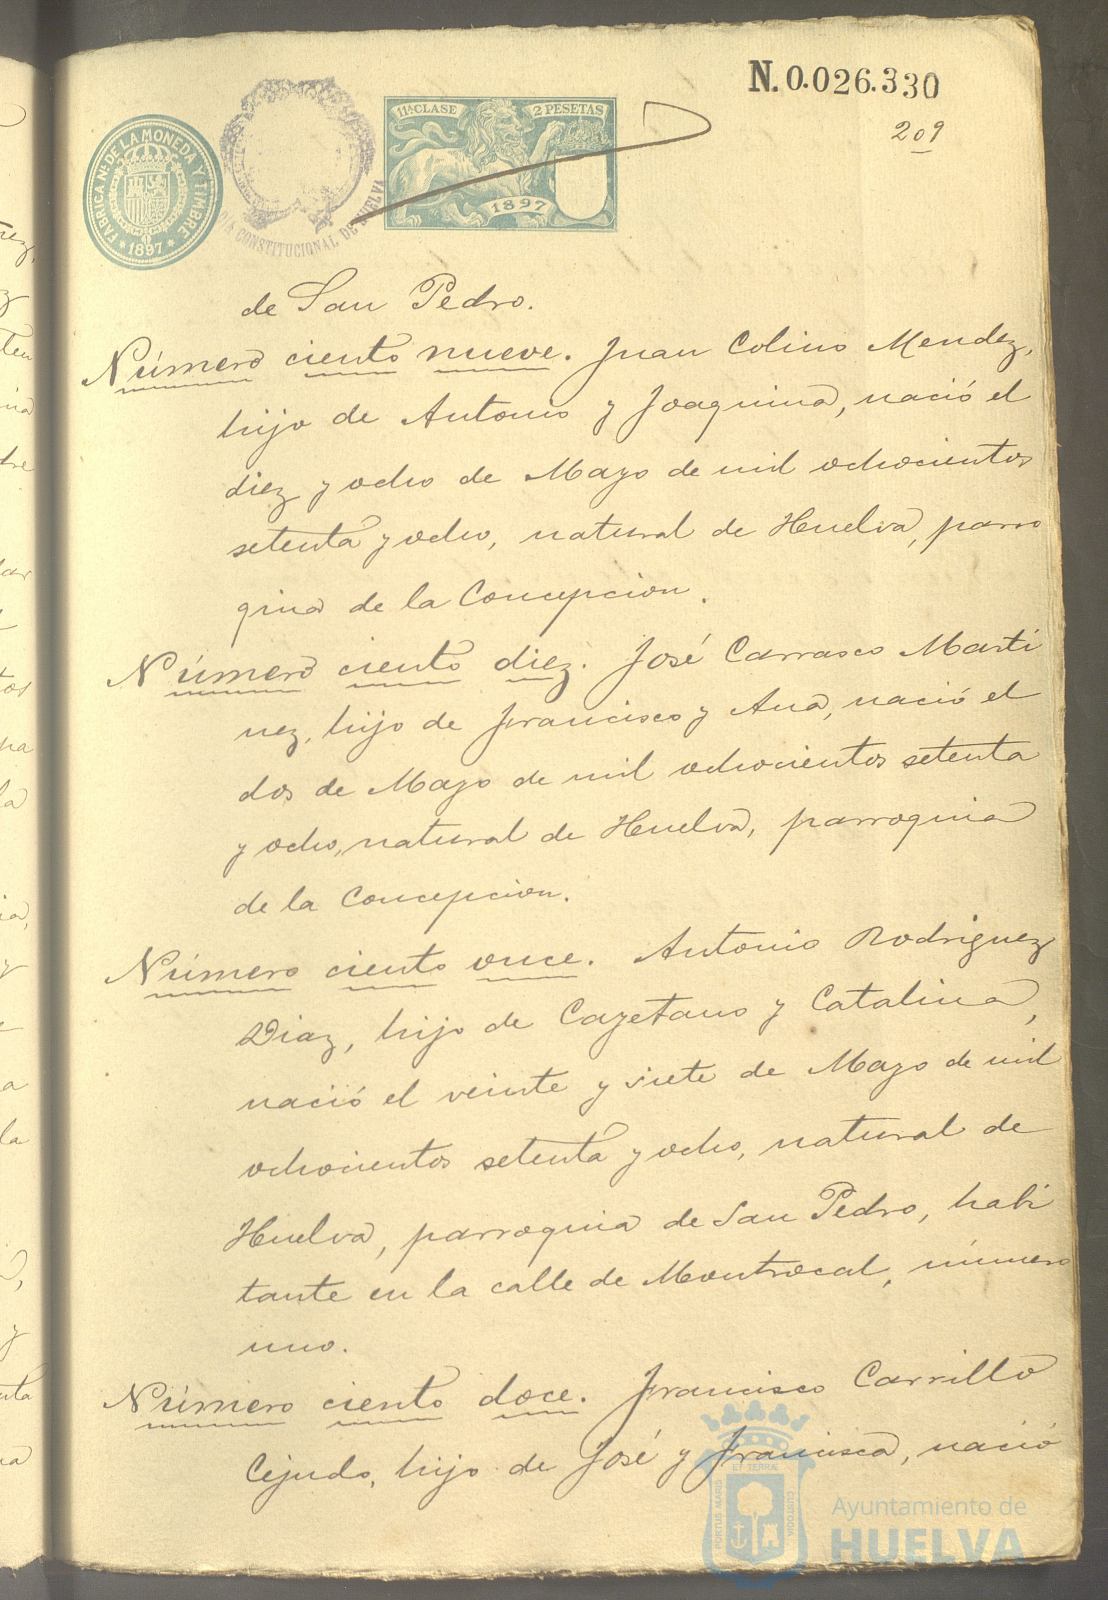 N. 0.026.330
209
11ª CLASE 2 PESETAS
1897
FABRICA Nal DE LA MONEDA Y TIMBRE
* 1897 *
CONSTITUCIONAL DE HUELVA
de San Pedro.
Número ciento nueve. Juan Colino Mendez,
hijo de Antonio y Joaquina, nació el
diez y ocho de Mayo de mil ochocientos
setenta y ocho, natural de Huelva, parro
quia de la Concepcion.
Número ciento diez. José Carrasco Marti
nez, hijo de Francisco y Ana, nació el
dos de Mayo de mil ochocientos setenta
y ocho, natural de Huelva, parroquia
de la Concepcion.
Número ciento once. Antonio Rodriguez
Diaz, hijo de Cayetano y Catalina,
nació el veinte y siete de Mayo de mil
ochocientos setenta y ocho, natural de
Huelva, parroquia de San Pedro, habi
tante en la calle de Montrocal, número
uno.
Número ciento doce. Francisco Carrillo
Cejudo, hijo de José y Francisca, nació
PORTUS MARIS ET TERRÆ CUSTODIA
Ayuntamiento de
HUELVA